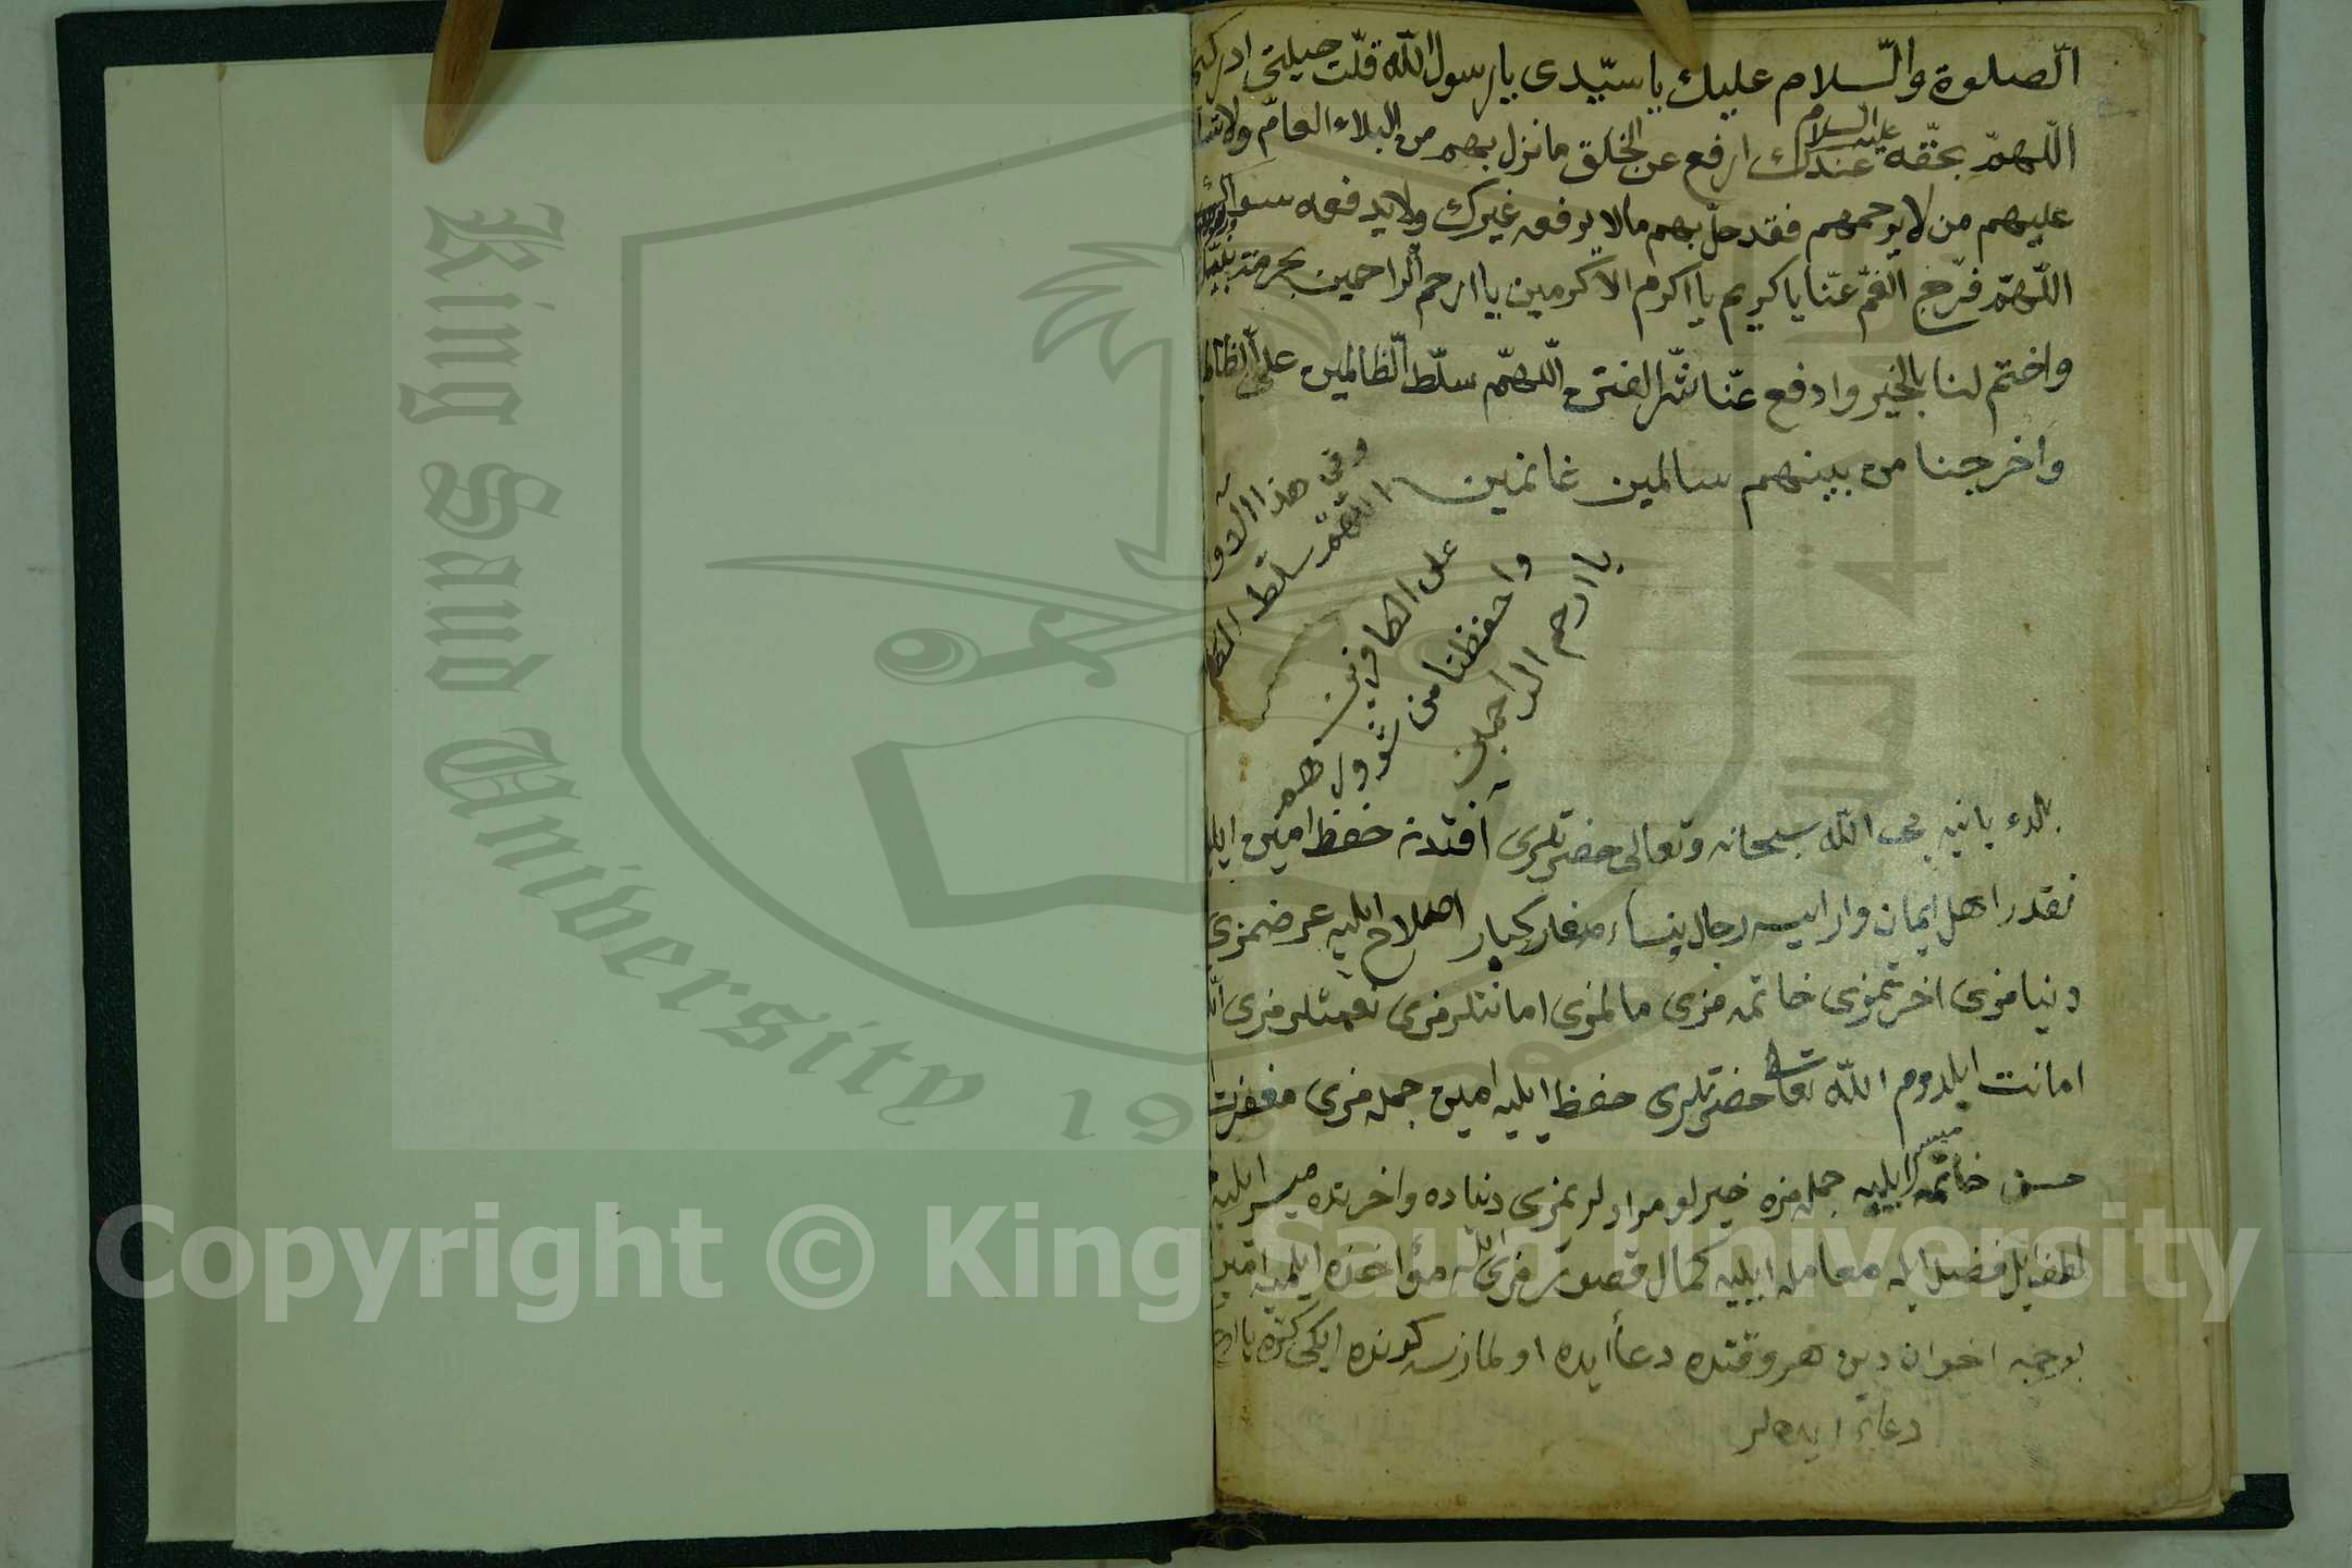 الصلوة والسلام عليك يا سيدى يا رسول الله قلت حيلتى ادركنى
اللهم بحقه عليه السلام عندك ارفع عن الخلق ما نزل بهم من البلاء العام ولا تسلط
عليهم من لا يرحمهم فقد حل بهم ما لا يرفعه غيرك ولا يدفعه سواك
اللهم فرج الغم عنا يا كريم يا اكرم الاكرمين يا ارحم الراحمين بحرمة
واختم لنا بالخير وادفع عنا شر الفتن اللهم سلط الظالمين على
واخرجنا من بينهم سالمين غانمين
وفى هذا
اللهم سلط
على الكافرين
واحفظنا من شرورهم
يا ارحم الراحمين
الله سبحانه وتعالى حضرتلرى آفتدن حفظ امين
نقدر اهل ايمان وار ايسه رجال نساء صغار كبار اصلاح ايليه عرضمزى
دنيامزى اخرتمزى خاتمه مزى مالمزى امانتلرمزى نعمتلرمزى
امانت ايلدوم الله تعالى حضرتلرى حفظ ايليه امين جمله مزى مغفرت
حسن خاتمه ميسر ايليه جمله مزه خيرلو مرادلرمزى دنياده واخرتده ميسر ايليه
لطفيل فضل ايله معامله ايليه كمال قصورمزى ايله مؤاخذه ايلميه امين
بو وجه اخوان دين هر وقتده دعا ايده اولمازسه كونده ايكى كره
دعا ايده لر
Copyright © King Saud University
King Saud University 19